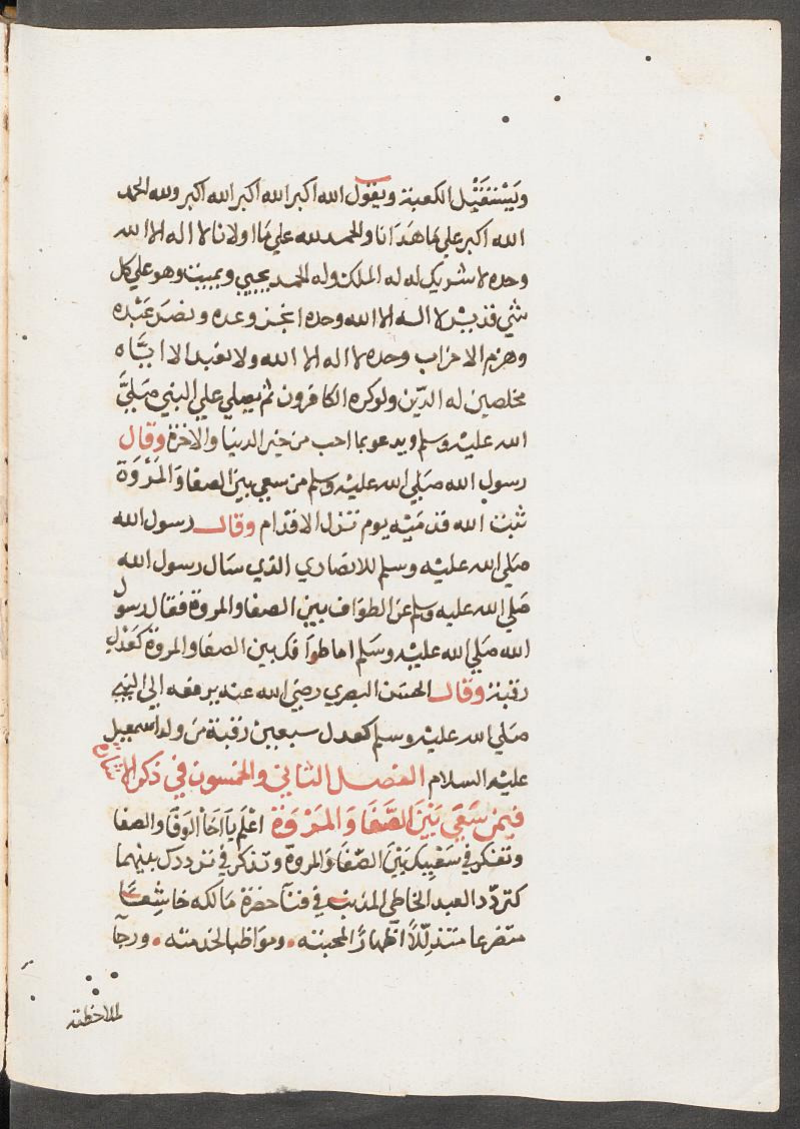 ويستقبل الكعبة ويقول الله اكبر الله اكبر الله اكبر ولله الحمد
الله اكبر علي ما هدانا والحمد لله علي ما اولانا لا اله الا الله
وحده لا شريك له له الملك وله الحمد يحيي ويميت وهو علي كل
شي قدير لا اله الا الله وحده انجز وعده ونصر عبده
وهزم الاحزاب وحده لا اله الا الله ولا نعبد الا اياه
مخلصين له الدين ولو كره الكافرون ثم يصلي علي النبي صلي
الله عليه وسلم ويدعو بما احب من خير الدنيا والاخرة وقال
رسول الله صلي الله عليه وسلم من سعي بين الصفا والمروة
ثبت الله قدميه يوم تزل الاقدام وقال رسول الله
صلي الله عليه وسلم للانصاري الذي سال رسول الله
صلي الله عليه وسلم عن الطواف بين الصفا والمروة فقال رسول
الله صلي الله عليه وسلم اما طوافك بين الصفا والمروة كعدل
رقبة وقال الحسن البصري رضي الله عنه يرفعه الي النبي
صلي الله عليه وسلم كعدل سبعين رقبة من ولد اسمعيل
عليه السلام الفصل الثاني والخمسون في ذكر
فيمن سعي بين الصفا والمروة اعلم يا اخا الوفا والصفا
وتفكر في سعيك بين الصفا والمروة وتذكر في ترددك بينهما
كتردد العبد الخاطي المذنب في فنآ حضرة مالكه خاشعا
متضرعا متذللًا اظهارًا لمحبته • ومواظبا لخدمته • ورجآ
لملاحظته